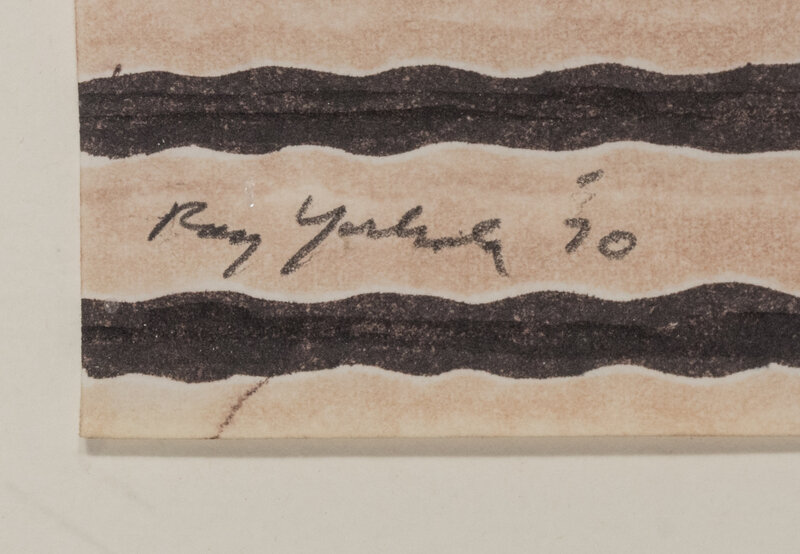 Ray Yoshida '70